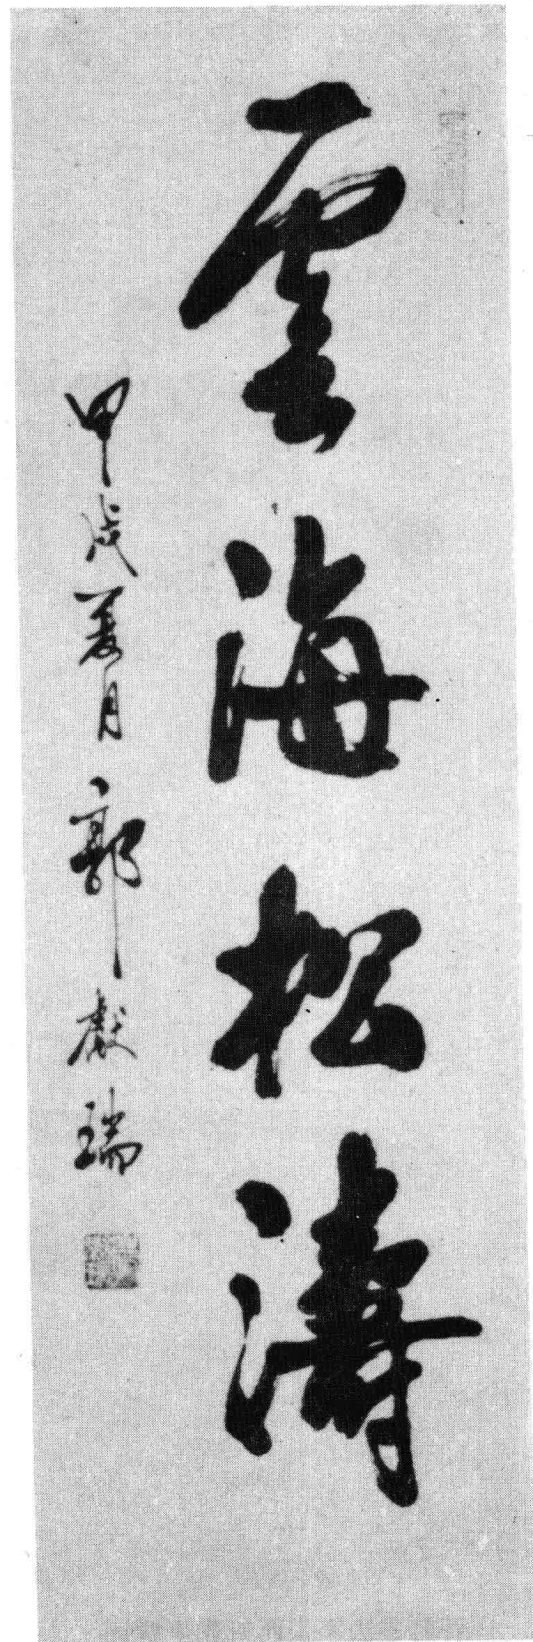 雲海松濤
甲戌夏月郭献瑞